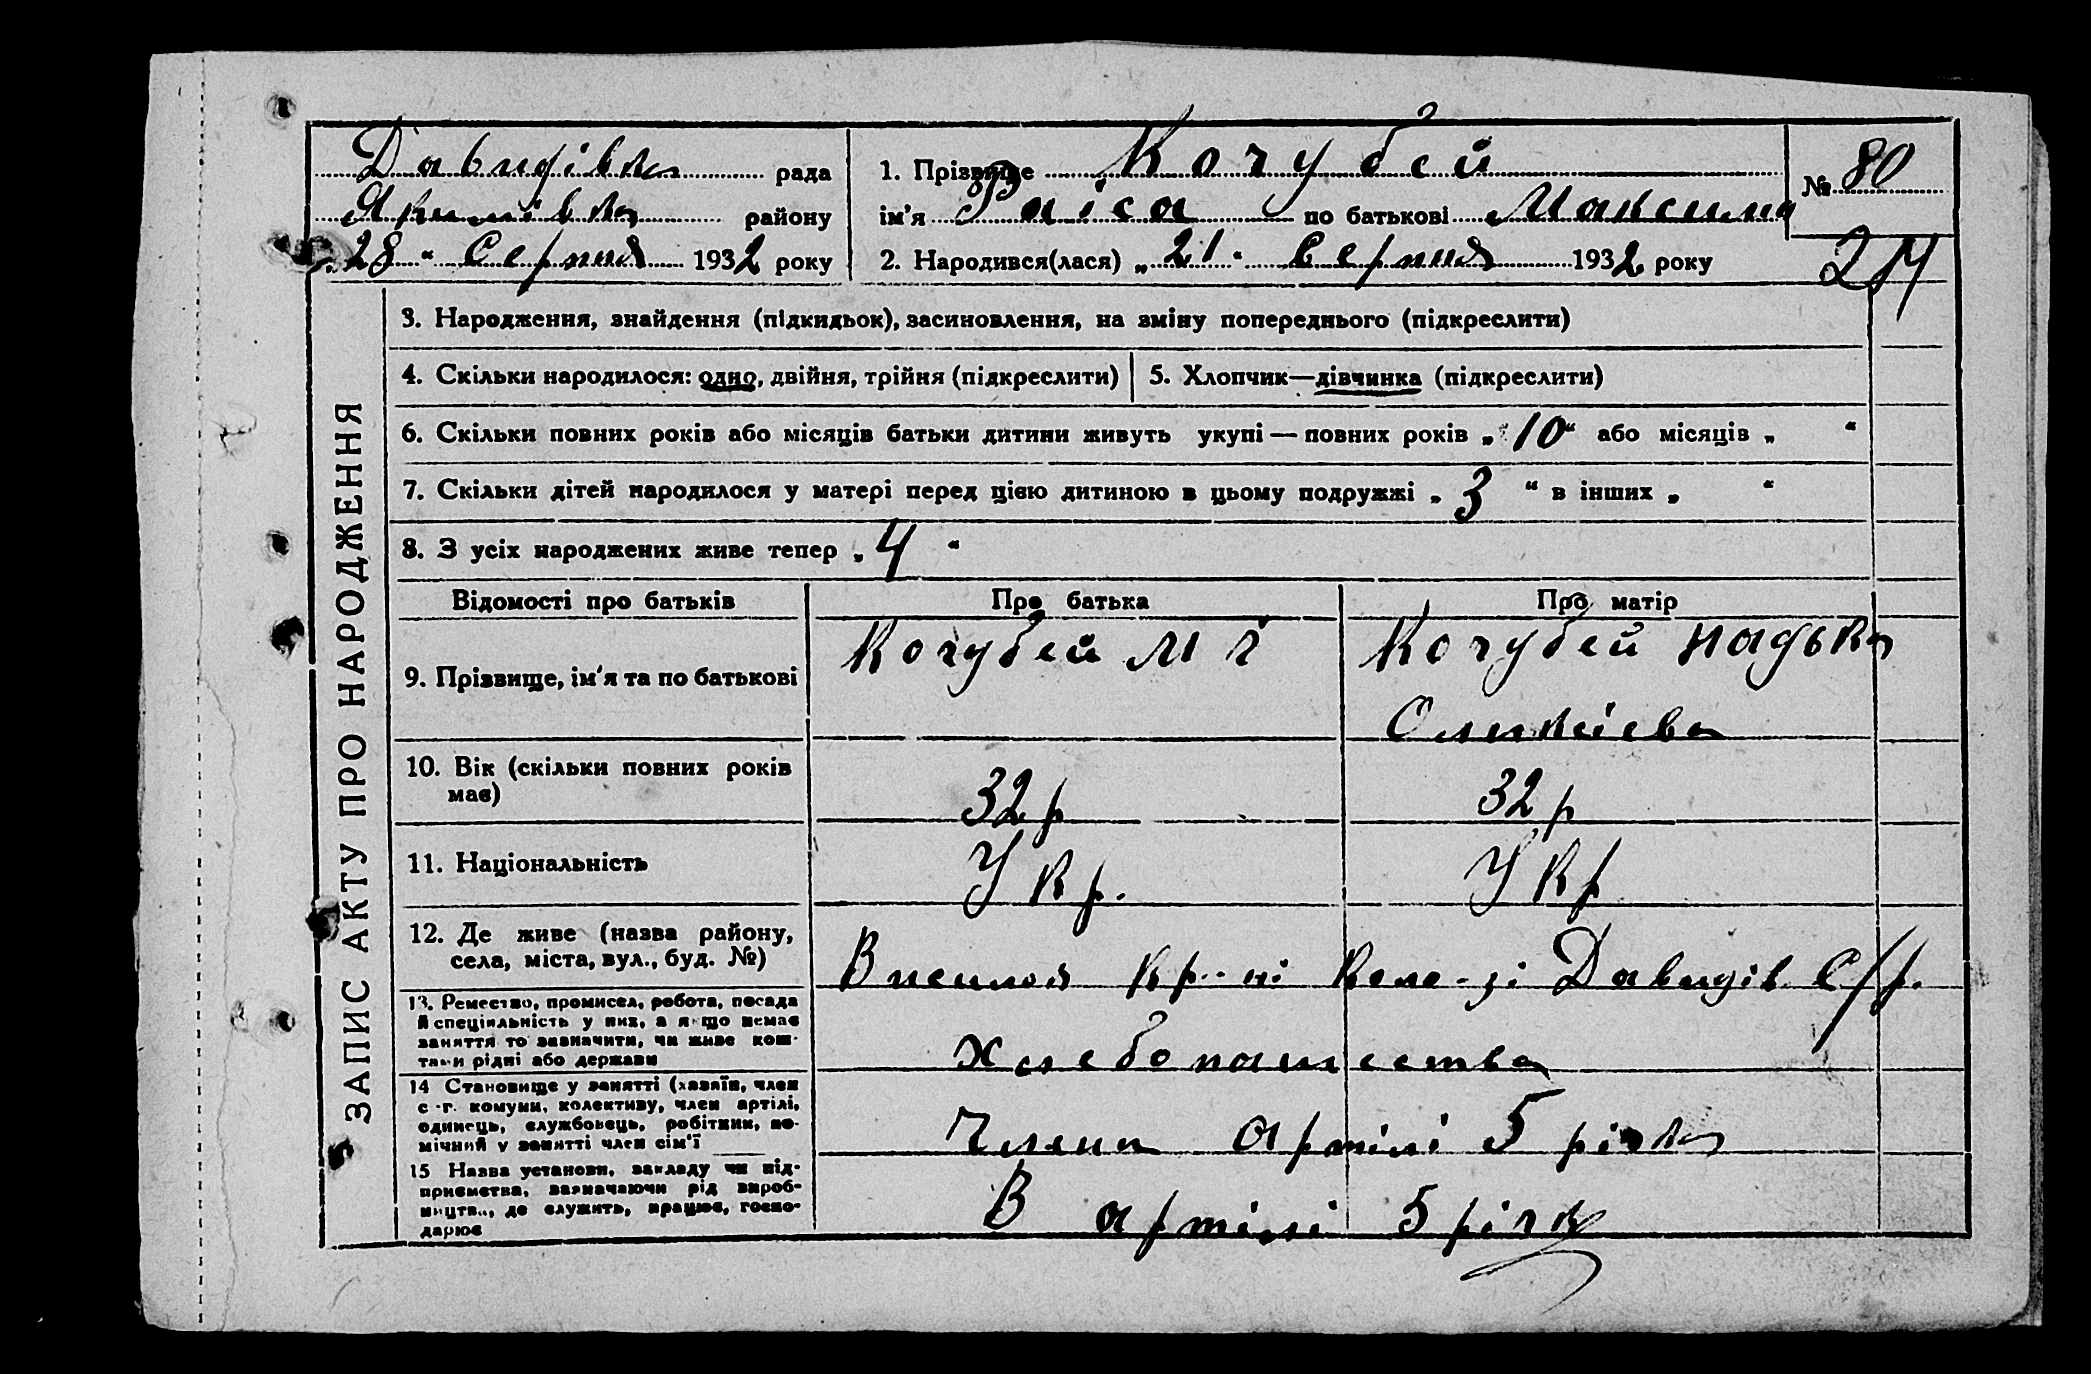 Давидівка рада
Якимівка району
„28“ Серпня 1932 року
1. Прізвище Кочубей
ім'я Раїса по батькові Максимна
2. Народився(лася) „21“ Серпня 1932 року
№ 80
ЗАПИС АКТУ ПРО НАРОДЖЕННЯ
3. Народження, знайдення (підкидьок), засиновлення, на зміну попереднього (підкреслити)
4. Скільки народилося: одно, двійня, трійня (підкреслити)
5. Хлопчик—дівчинка (підкреслити)
6. Скільки повних років або місяців батьки дитини живуть укупі — повних років „10“ або місяців „ “
7. Скільки дітей народилося у матері перед цією дитиною в цьому подружжі „3“ в інших „ “
8. З усіх народжених живе тепер „4“
Відомості про батьків
Про батька
Про матір
9. Прізвище, ім'я та по батькові
Кочубей М Г
Кочубей Надька
10. Вік (скільки повних років
має)
32 р
32 р
11. Національність
Укр.
Укр
12. Де живе (назва району,
села, міста, вул., буд. №)
кр-ні Давидів. С/р.
13. Ремество, промисел, робота, посада
й спеціяльність у них, а якщо немає
заняття то зазначити, чи живе кош-
тами рідні або держави
Хлебопашество
14 Становище у занятті (хазяїн, член
с.-г. комуни, колективу, член артілі,
одинець, службовець, робітник, по-
мічний у занятті член сім'ї
Члени артілі 5 річка
15 Назва установи, закладу чи під-
приємства, зазначаючи рід вироб-
ництва, де служить, працює, госпо-
дарює
В артілі 5 річк